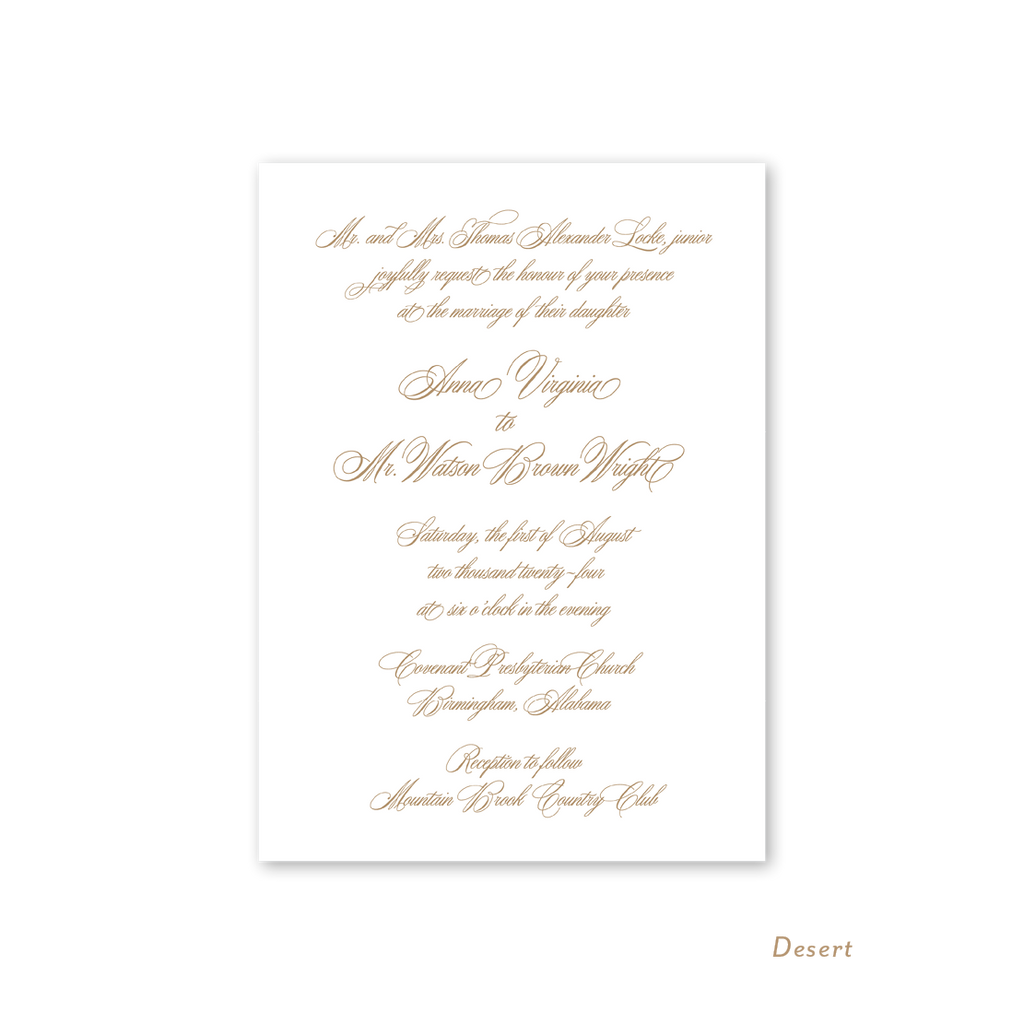 Mr. and Mrs. Thomas Alexander Locke, junior
joyfully request the honour of your presence
at the marriage of their daughter
Anna Virginia
to
Mr. Watson Brown Wright
Saturday, the first of August
two thousand twenty-four
at six o'clock in the evening
Covenant Presbyterian Church
Birmingham, Alabama
Reception to follow
Mountain Brook Country Club
Desert